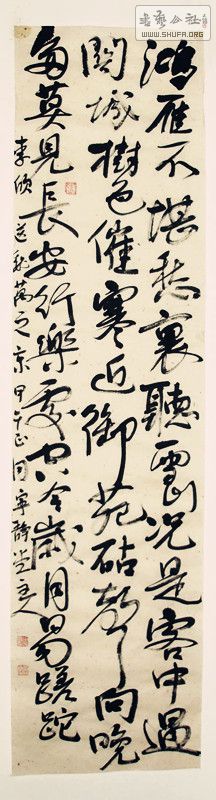 书艺公社
WWW.SHUFA.ORG
鴻雁不堪愁裏聽雲山況是客中過
關城樹色催寒近御苑砧聲向晚
多莫見長安行樂處空令歲月易蹉跎
李頎送魏萬之京甲午